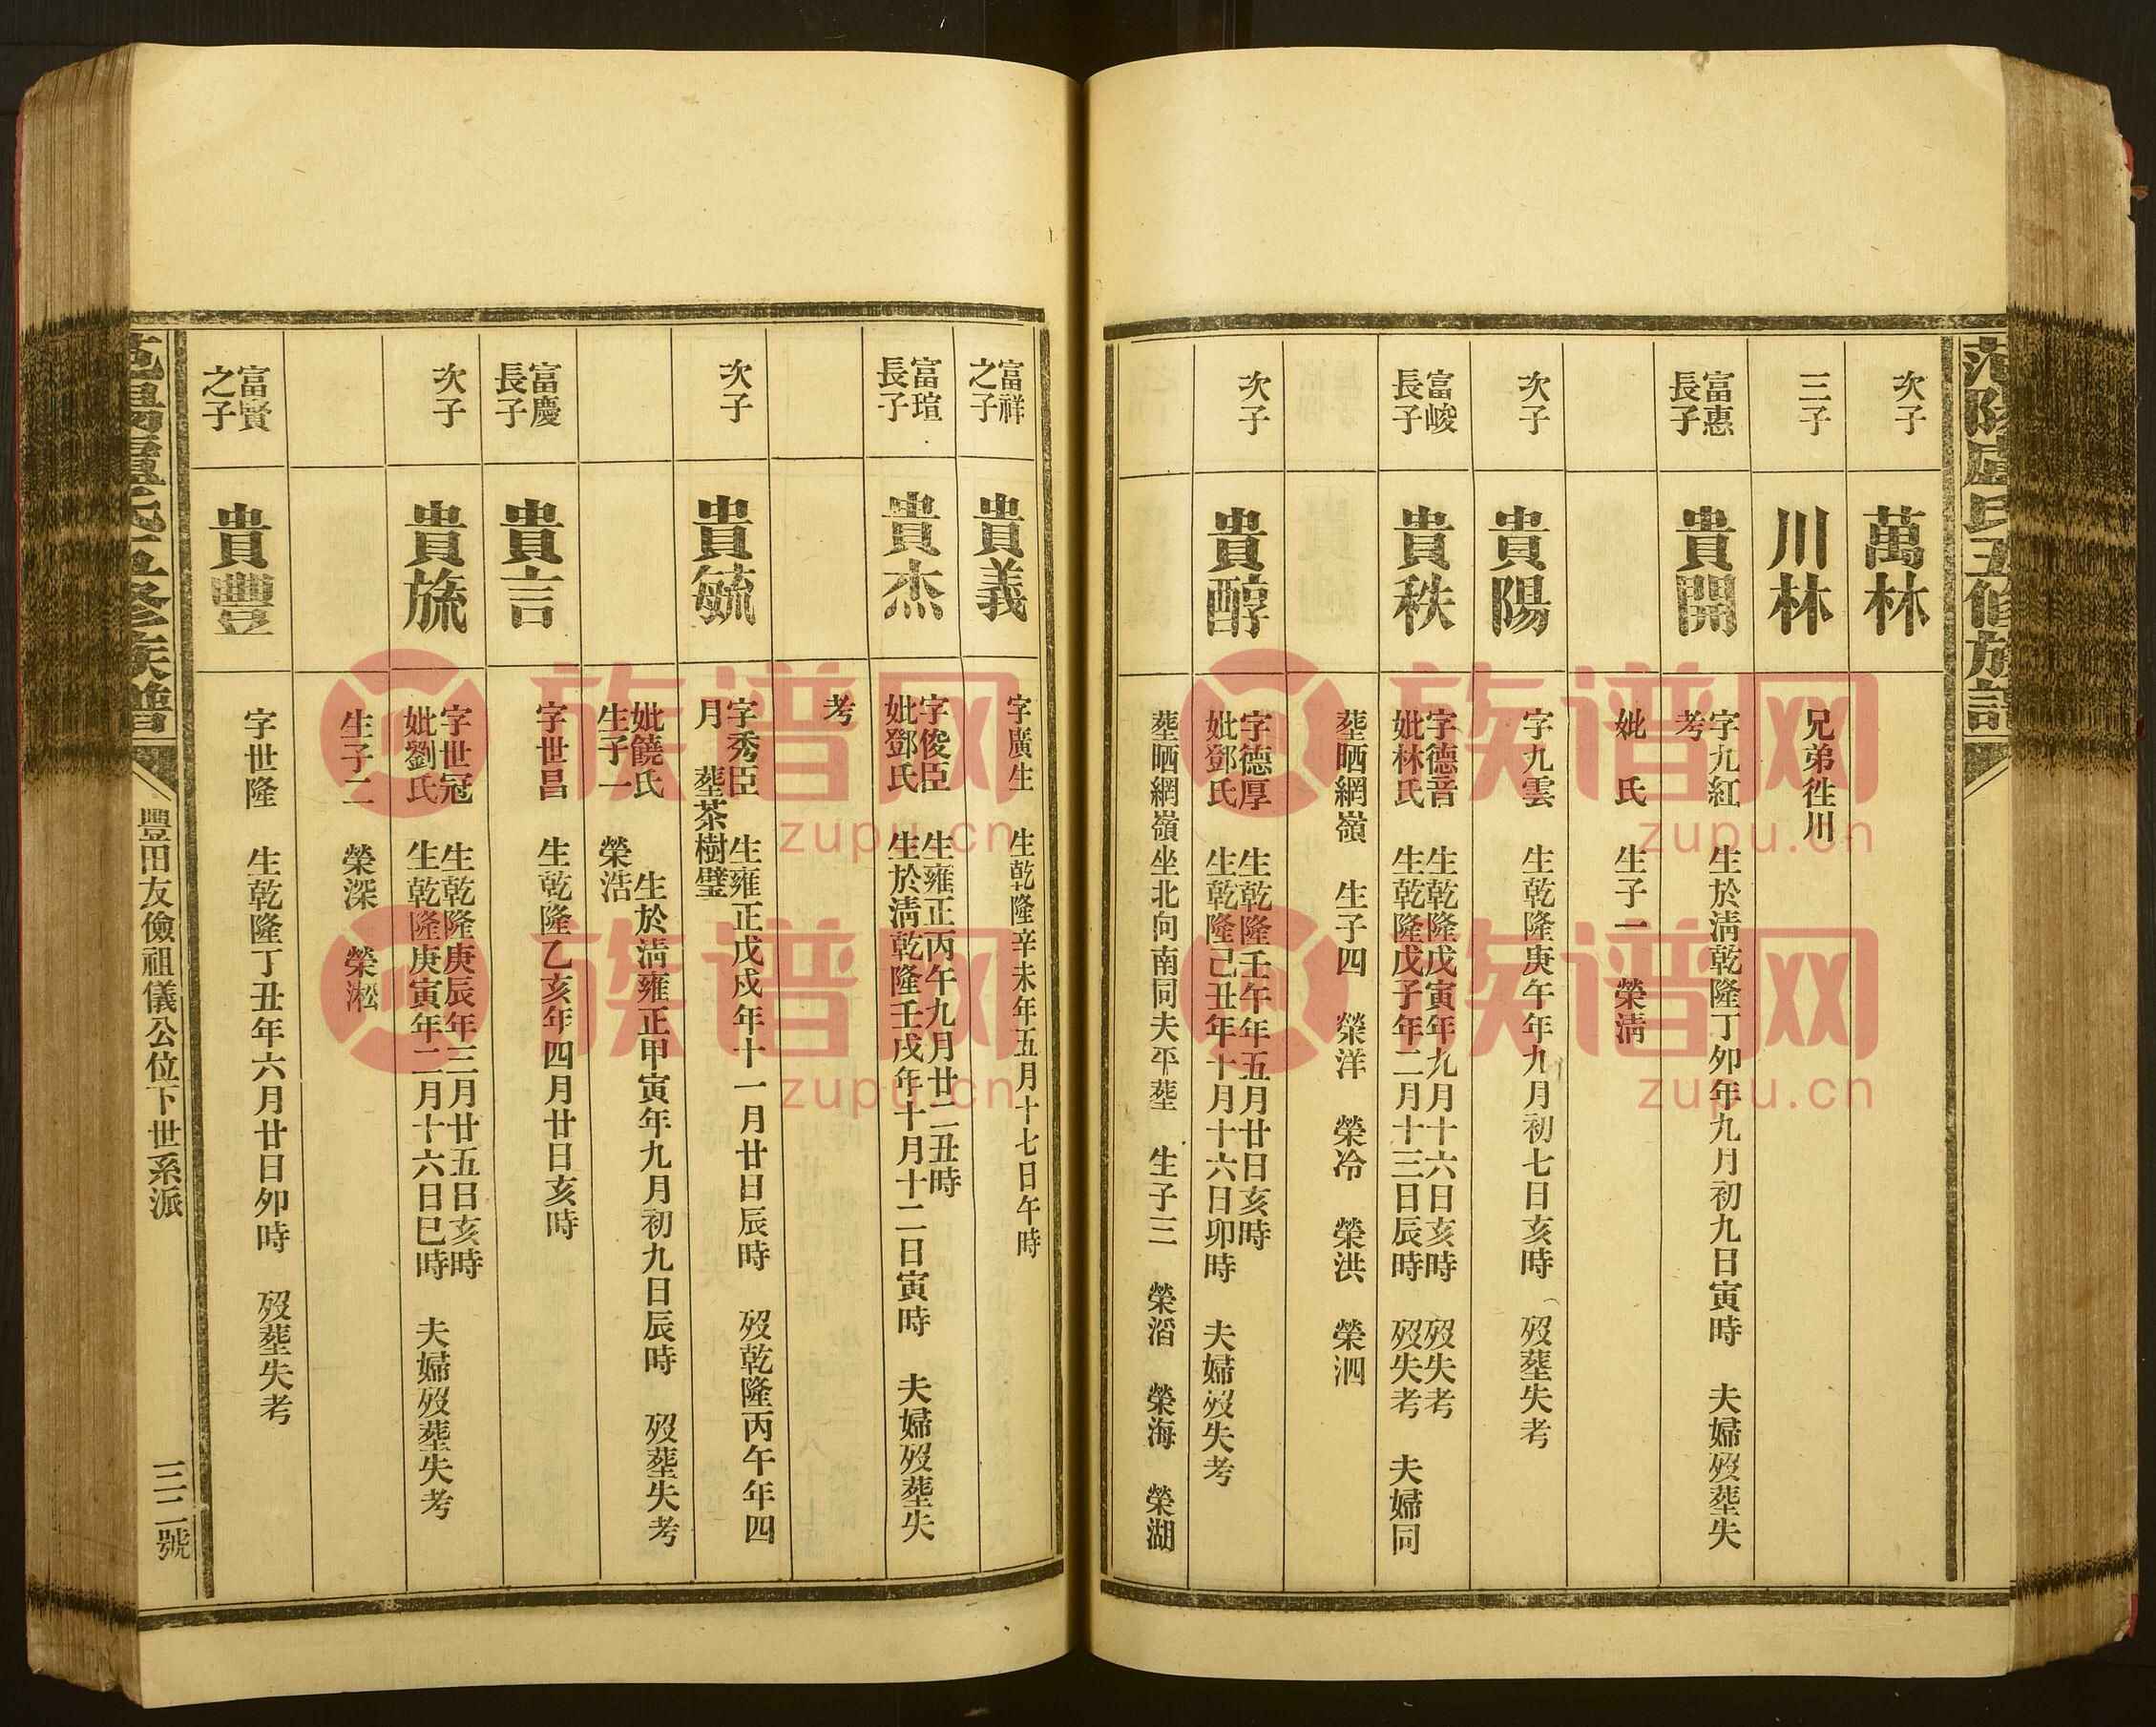 范陽盧氏五修族譜
次子
萬林
三子
川林
兄弟徃川
富惠
長子
貴開
字九紅　生於淸乾隆丁夘年九月初九日寅時　夫婦歿塟失
考
妣　氏　生子一　榮淸
次子
貴陽
字九雲　生乾隆庚午年九月初七日亥時　歿塟失考
富峻
長子
貴秩
字德音　生乾隆戊寅年九月十六日亥時　歿失考
妣林氏　生乾隆戊子年二月十三日辰時　歿失考　夫婦同
塟晒網嶺　生子四　榮洋　榮冷　榮洪　榮泗
次子
貴醇
字德厚　生乾隆壬午年五月廿日亥時
妣鄧氏　生乾隆己丑年十月十六日卯時　夫婦歿失考
塟晒網嶺坐北向南同夫平塟　生子三　榮滔　榮海　榮湖
富祥
之子
貴義
字廣生　生乾隆辛未年五月十七日午時
富瑄
長子
貴杰
字俊臣　生雍正丙午九月廿二丑時
妣鄧氏　生於淸乾隆壬戌年十月十二日寅時　夫婦歿塟失
考
次子
貴毓
字秀臣　生雍正戊戍年十一月廿日辰時　歿乾隆丙午年四
月　塟茶樹璧
妣饒氏　生於淸雍正甲寅年九月初九日辰時　歿塟失考
生子一　榮浩
富慶
長子
貴言
字世昌　生乾隆乙亥年四月廿日亥時
次子
貴旒
字世冠　生乾隆庚辰年三月廿五日亥時
妣劉氏　生乾隆庚寅年二月十六日巳時　夫婦歿塟失考
生子二　榮深　榮淞
富賢
之子
貴豐
字世隆　生乾隆丁丑年六月廿日夘時　歿塟失考
范陽盧氏五修族譜
豐田友儉祖儀公位下世系派
三二號
族谱网
zupu.cn
族谱网
zupu.cn
族谱网
zupu.cn
族谱网
zupu.cn